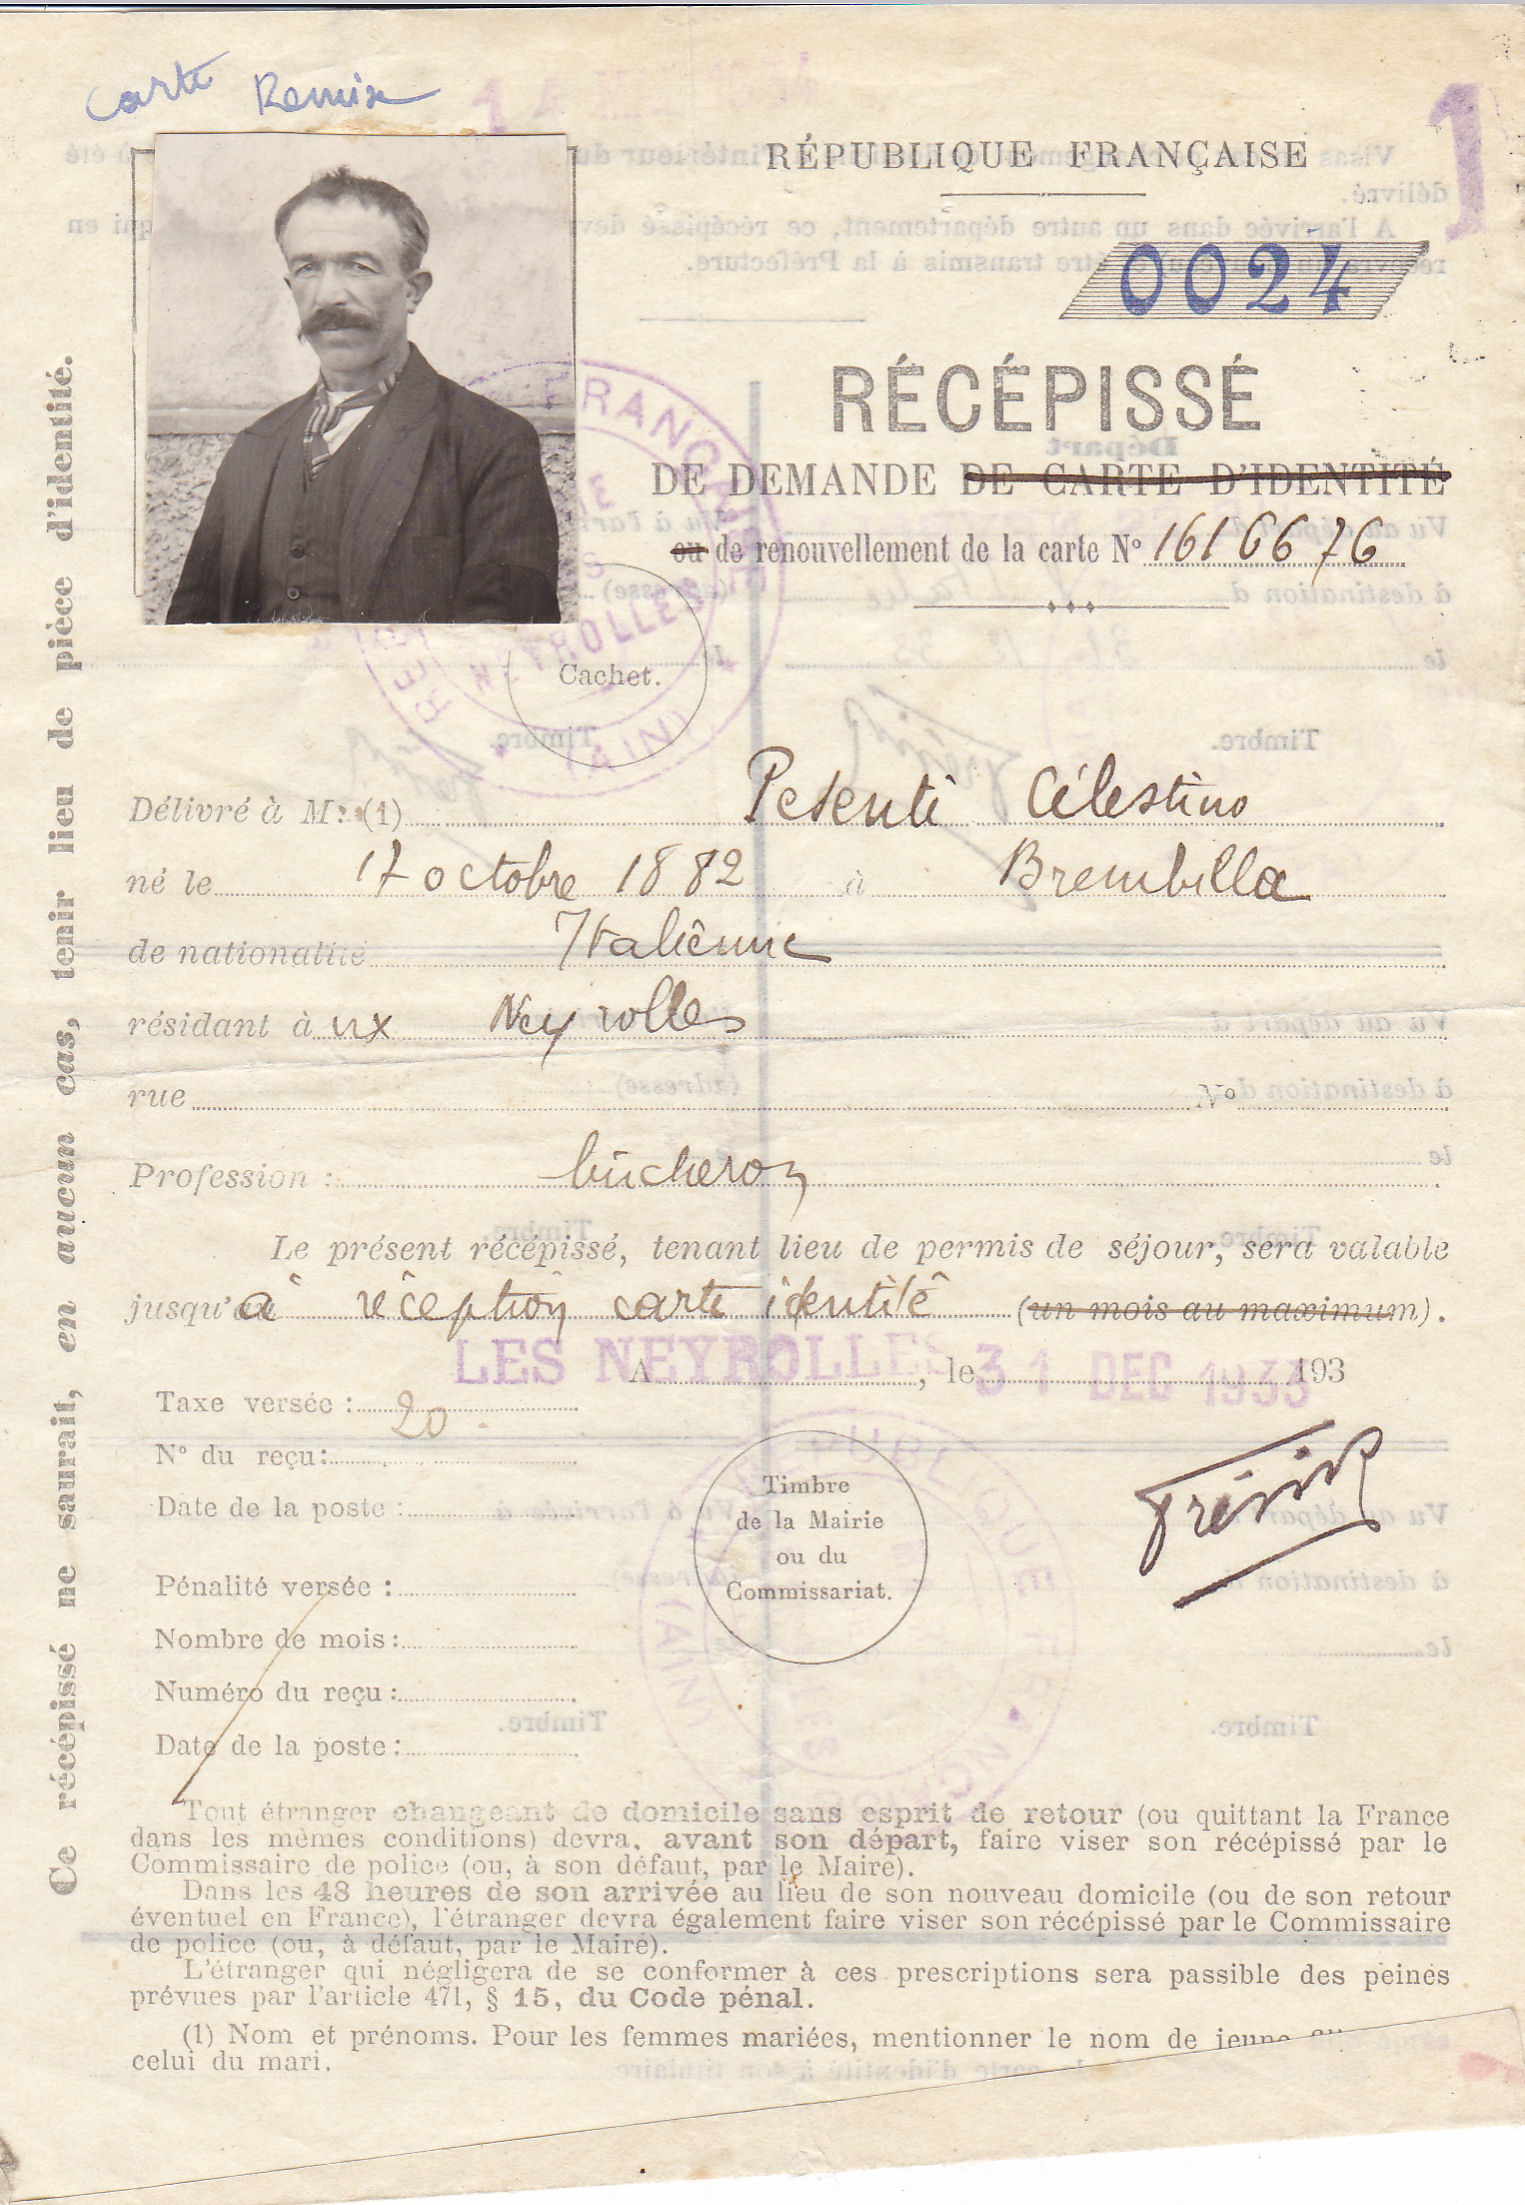 Carte Remise
RÉPUBLIQUE FRANÇAISE
0024
RÉCÉPISSÉ
DE DEMANDE DE CARTE D'IDENTITÉ
ou de renouvellement de la carte N° 1616676
Cachet.
Délivré à M: (1) Pesenti Célestino
né le 17 octobre 1882 à Brembilla
de nationalité Italienne
résidant à ux Neyrolles
rue N°
Profession : bûcheron
Le présent récépissé, tenant lieu de permis de séjour, sera valable
jusqu'au à réception carte identité (un mois au maximum).
LES NEYROLLES
A , le 31 DEC 1933 193
Taxe versée : 20
N° du reçu :
Date de la poste :
Timbre
de la Mairie
ou du
Commissariat.
Pénalité versée :
Nombre de mois :
Numéro du reçu :
Date de la poste :
Tout étranger changeant de domicile sans esprit de retour (ou quittant la France
dans les mêmes conditions) devra, avant son départ, faire viser son récépissé par le
Commissaire de police (ou, à son défaut, par le Maire).
Dans les 48 heures de son arrivée au lieu de son nouveau domicile (ou de son retour
éventuel en France), l'étranger devra également faire viser son récépissé par le Commissaire
de police (ou, à défaut, par le Maire).
L'étranger qui négligera de se conformer à ces prescriptions sera passible des peines
prévues par l'article 471, § 15, du Code pénal.
(1) Nom et prénoms. Pour les femmes mariées, mentionner le nom de jeune
celui du mari.
Ce récépissé ne saurait, en aucun cas, tenir lieu de pièce d'identité.